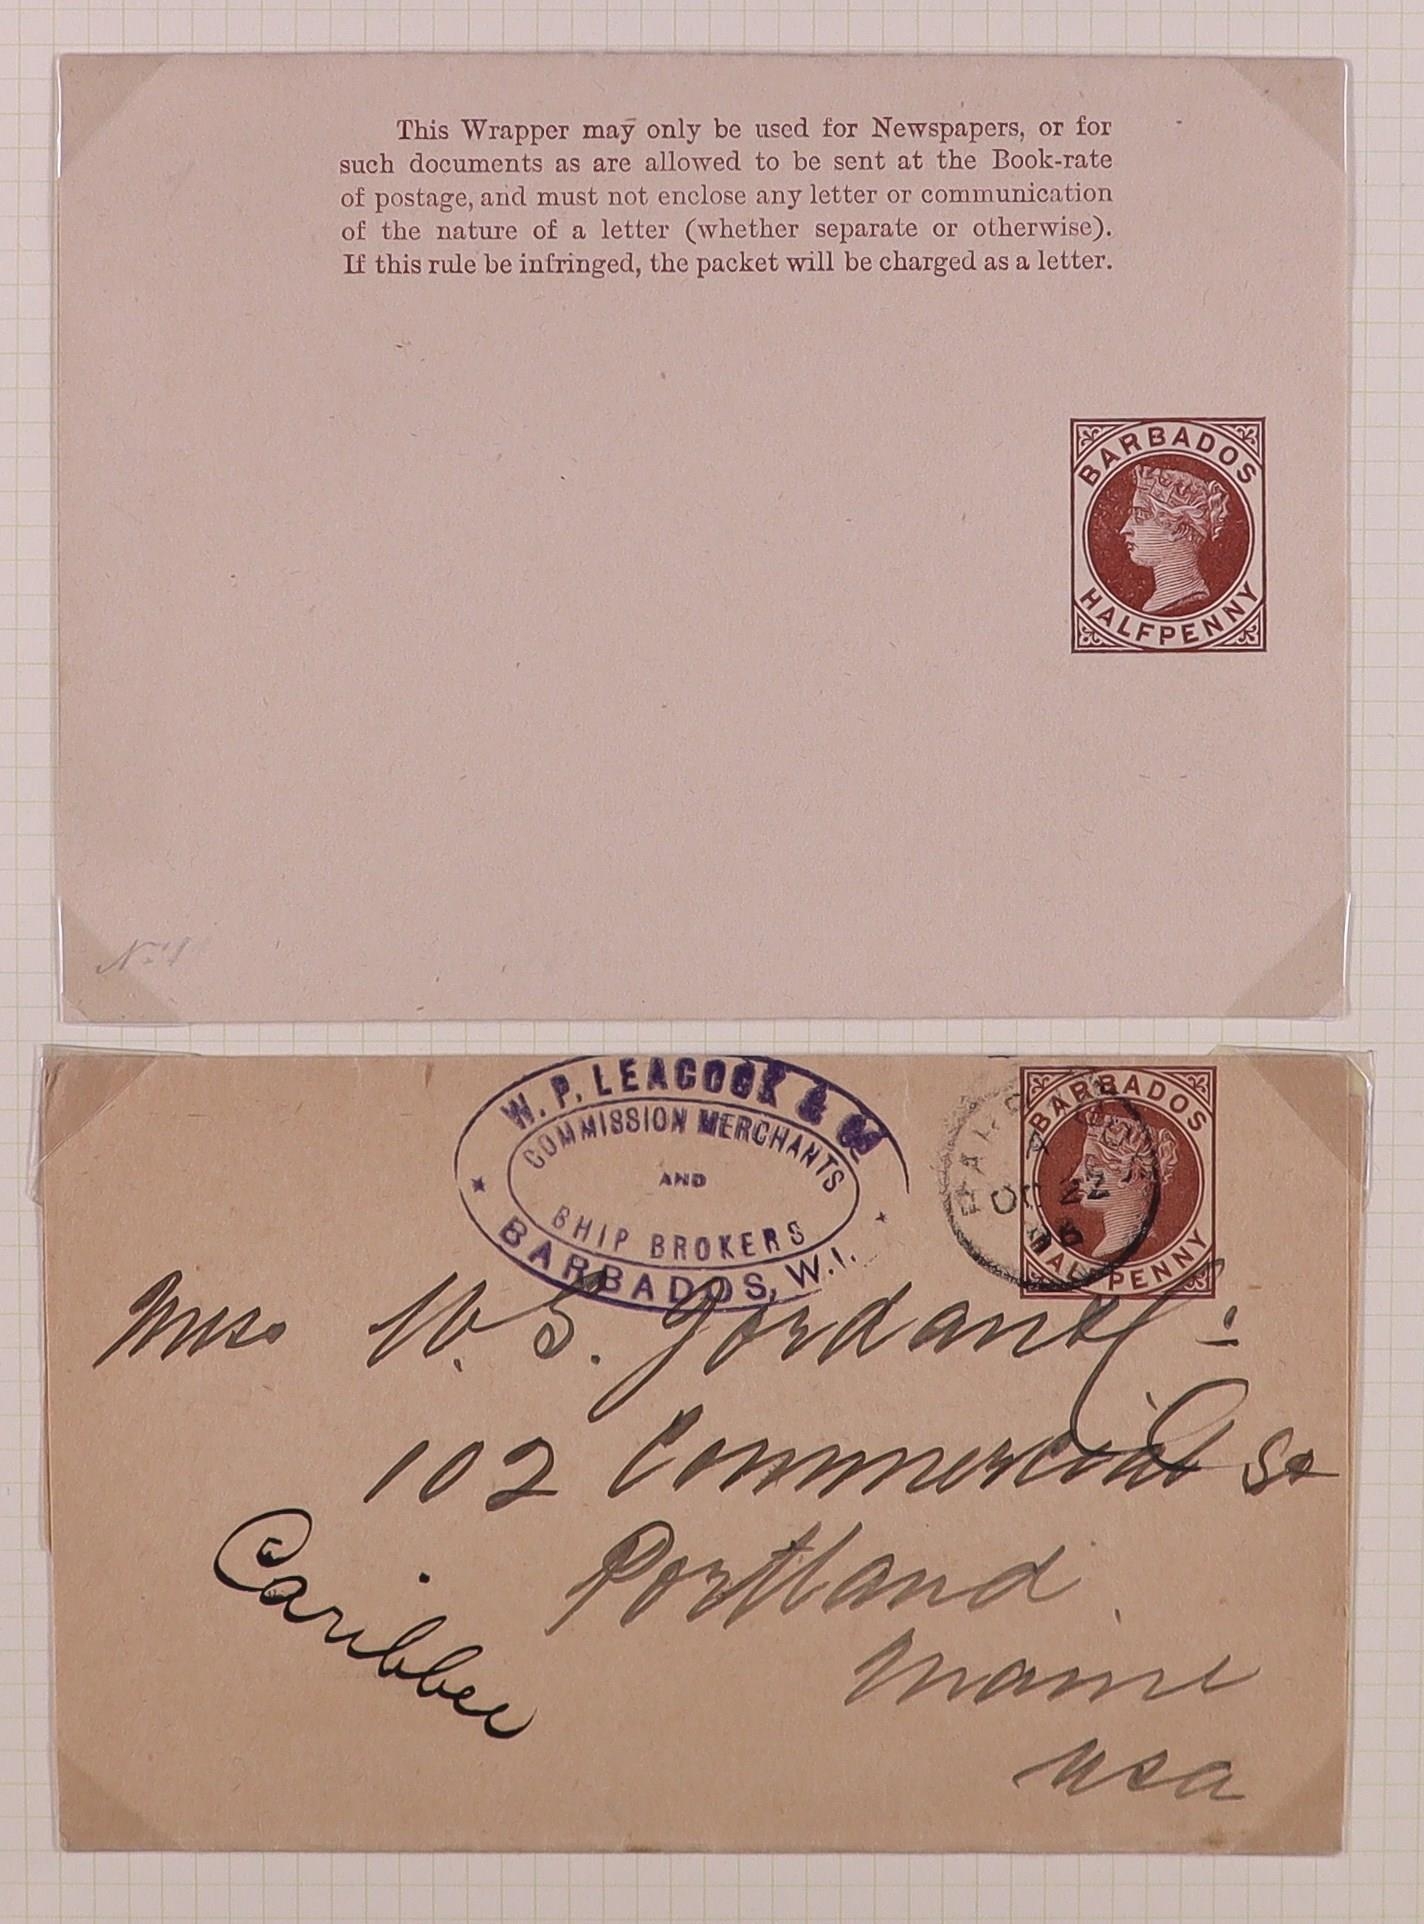 This Wrapper may only be used for Newspapers, or for
such documents as are allowed to be sent at the Book-rate
of postage, and must not enclose any letter or communication
of the nature of a letter (whether separate or otherwise).
If this rule be infringed, the packet will be charged as a letter.
BARBADOS
HALFPENNY
W. P. LEACOCK & Co
COMMISSION MERCHANTS
AND
SHIP BROKERS
BARBADOS, W.I.
BARBADOS
HALFPENNY
OC 22
Mess W. S. Jordan & Co
102 Commercial St
Portland
Maine
USA
Caribbee